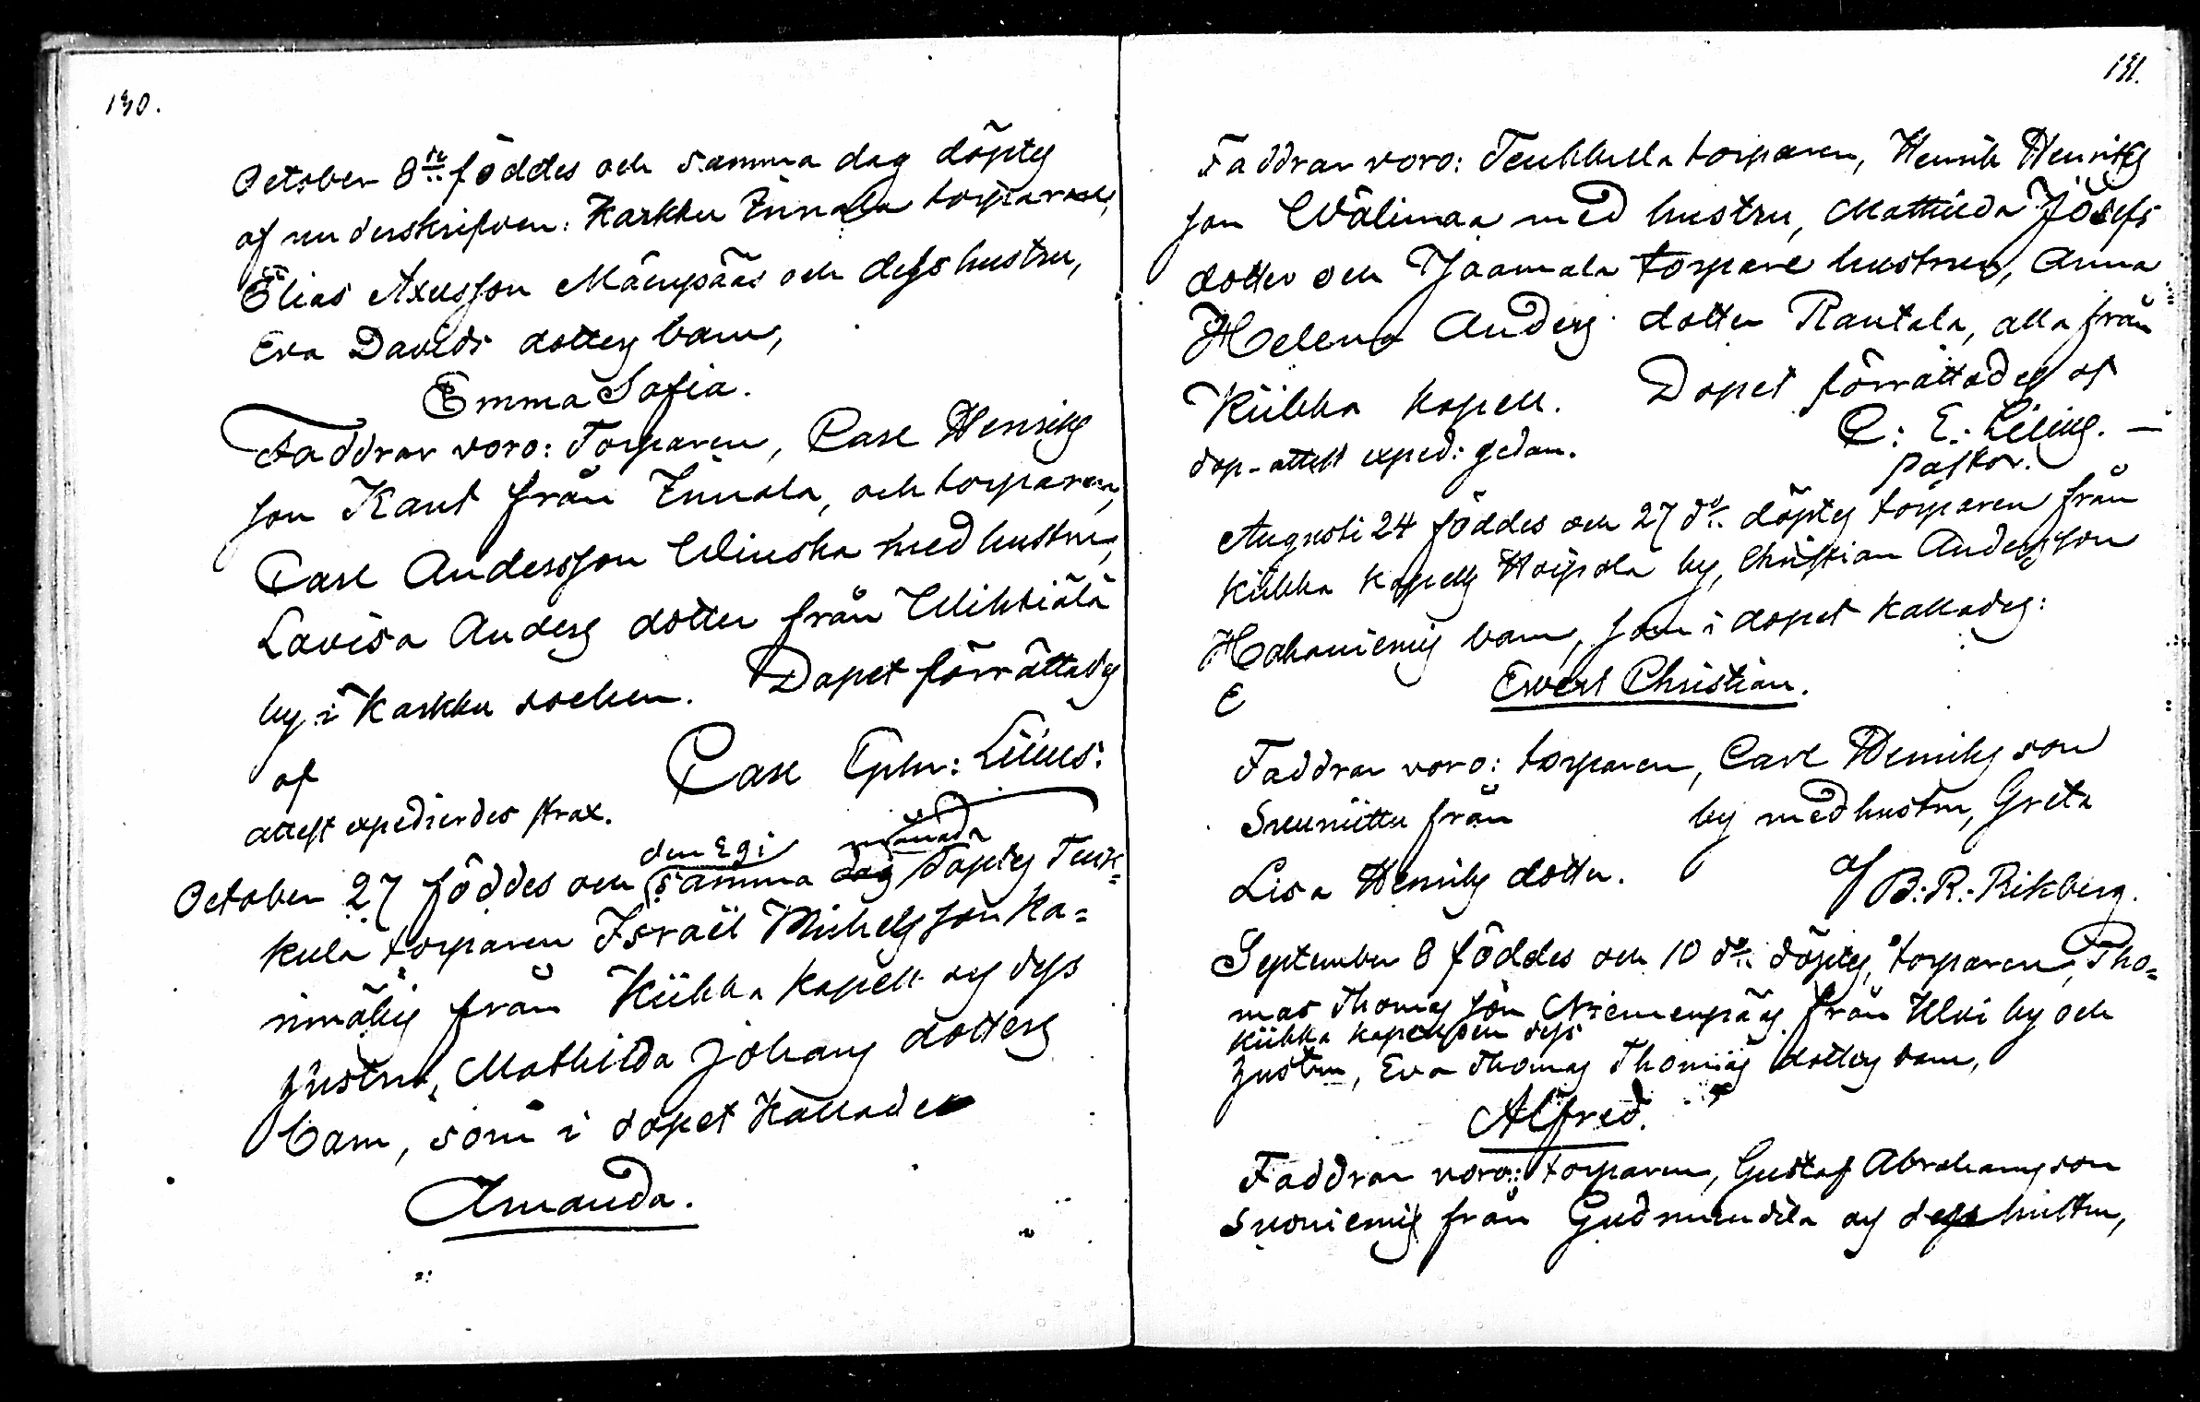 130.
October 8de föddes och samma dag döptes
af underskrifven: Karkku Innala torparens,
Elias Axelsson Mäenpääs och dess hustru,
Eva Davids dotters barn,
Emma Sofia.
Faddrar voro: Torparen, Carl Henriks
son Kant från Innala, och torparen,
Carl Andersson Winska med hustru,
Lovisa Anders dotter från Wihtiälä
by i Karkku socken. Dopet förrättades
af Carl Ephr:
attest expedierdes strax.
den månads
October 27 föddes och samma dag döptes Teuk=
kula torparen Israël Michelsson Ka=
från Kiikka kapell og dess
hustrus, Mathilda Johans dotters
barn, som i dopet kallades
Amanda.
131.
Faddrar voro: Teukkula torparen, Henrik Henriks
son Wälimaa med hustru, Mathilda Josefs
dotter och Jaamala torpare hustrun, Anna
Helena Anders dotter Rantala, alla från
Kiikka kapell. Dopet förrättades af
C: E:
Pastor.
dop-attest exped: sedan.
Augusti 24 föddes och 27 do: döptes torparen från
Kiikka kapells Hoipola by, Christian Andersson
Hahaniemis barn, som i dopet kallades:
E Ewert Christian.
Faddrar voro: torparen, Carl Henriks son
Suuniittu från by med hustru, Greta
Lisa Henriks dotter. af B: R: Rikberg.
September 8 föddes och 10 do: döptes, torparen, Tho=
mas Thomas son Niemenpääs från Ulvi by och
Kiikka kapell sen dess
hustru, Eva Thomas Thomas dotters barn,
Alfred.
Faddrar voro: torparen, Gustaf Abrahamsson
Suoniemis från Gudmundila og dess hustru,